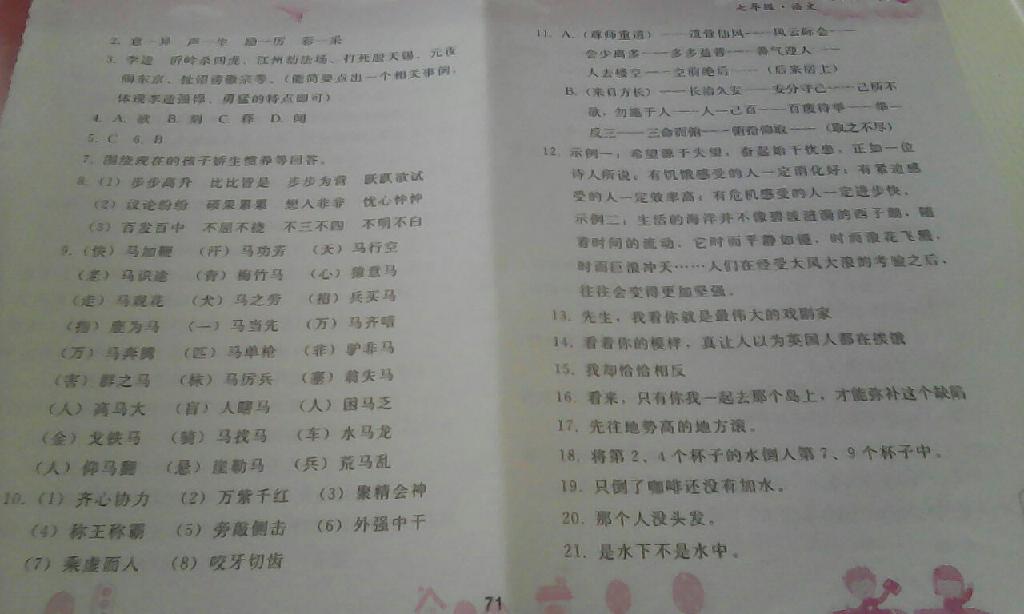 七年级·语文
2. 意—异 声—生 励—厉 彩—采
3. 李逵 沂岭杀四虎、江州劫法场、打死殷天锡、元夜
闹东京、扯诏谤徽宗等。(能简要点出一个相关事例,
体现李逵强悍、勇猛的特点即可)
4. A. 欲 B. 别 C. 释 D. 闻
5. C 6. B
7. 围绕现在的孩子娇生惯养等回答。
8. (1) 步步高升 比比皆是 步步为营 跃跃欲试
(2) 议论纷纷 硕果累累 想入非非 忧心忡忡
(3) 百发百中 不屈不挠 不三不四 不明不白
9. (快) 马加鞭 (汗) 马功劳 (天) 马行空
(老) 马识途 (青) 梅竹马 (心) 猿意马
(走) 马观花 (犬) 马之劳 (招) 兵买马
(指) 鹿为马 (一) 马当先 (万) 马齐喑
(万) 马奔腾 (匹) 马单枪 (非) 驴非马
(害) 群之马 (秣) 马厉兵 (塞) 翁失马
(人) 高马大 (盲) 人瞎马 (人) 困马乏
(金) 戈铁马 (骑) 马找马 (车) 水马龙
(人) 仰马翻 (悬) 崖勒马 (兵) 荒马乱
10. (1) 齐心协力 (2) 万紫千红 (3) 聚精会神
(4) 称王称霸 (5) 旁敲侧击 (6) 外强中干
(7) 乘虚而入 (8) 咬牙切齿
71
11. A. (尊师重道)——道骨仙风——风云际会——
会少离多——多多益善——善气迎人——
人去楼空——空前绝后——(后来居上)
B. (来日方长)——长治久安——安分守己——己所不
欲,勿施于人——人一己百——百废待举——举一
反三——三命而俯——俯拾仰取——(取之不尽)
12. 示例一:希望源于失望,奋起始于忧患,正如一位
诗人所说:有饥饿感受的人一定消化好;有紧迫感
受的人一定效率高;有危机感受的人一定进步快。
示例二:生活的海洋并不像碧波涟漪的西子湖,随
着时间的流动,它时而平静如镜,时而浪花飞溅,
时而巨浪冲天……人们在经受大风大浪的考验之后,
往往会变得更加坚强。
13. 先生,我看你就是最伟大的戏剧家
14. 看着你的模样,真让人以为英国人都在挨饿
15. 我却恰恰相反
16. 看来,只有你我一起去那个岛上,才能弥补这个缺陷
17. 先往地势高的地方滚。
18. 将第2、4个杯子的水倒入第7、9个杯子中。
19. 只倒了咖啡还没有加水。
20. 那个人没头发。
21. 是水下不是水中。